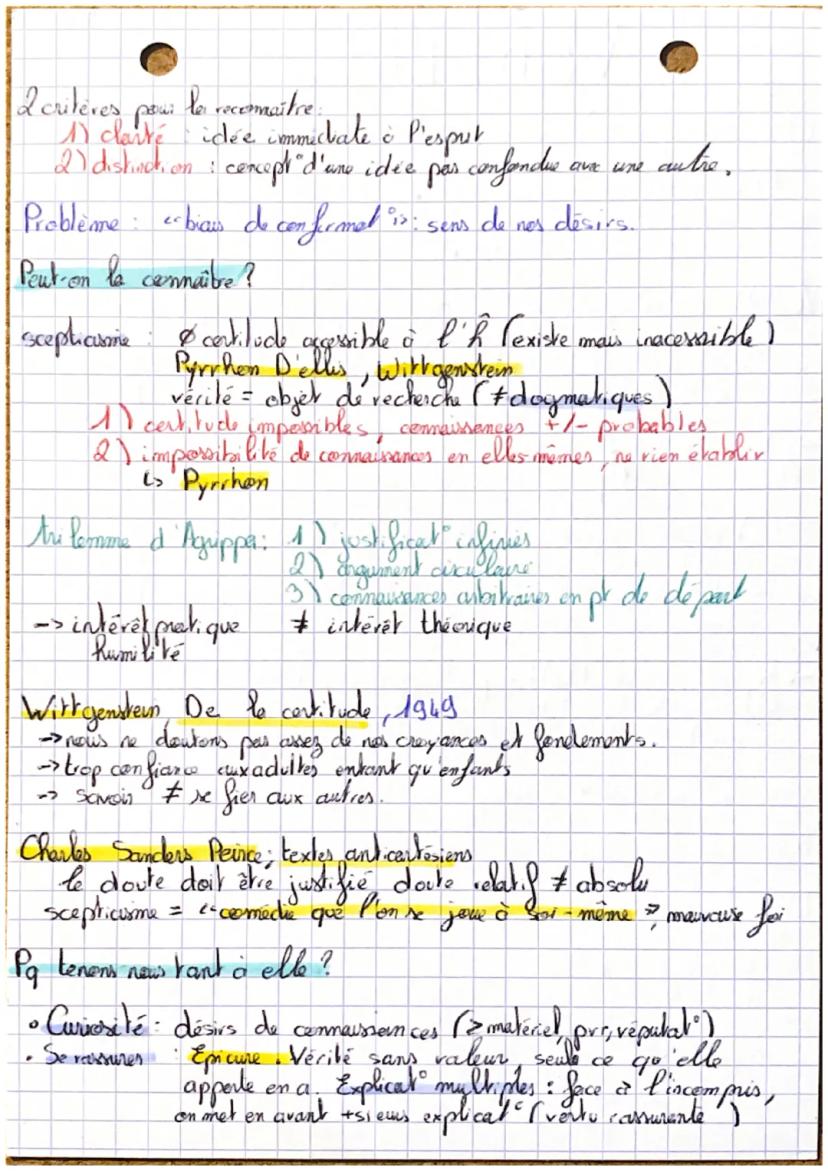 2 critères pour la reconnaître :
1) clarté : idée immédiate à l'esprit
2) distinction : concept° d'une idée pas confondue avec une autre.
Problème : "biais de confirmat°" : sens de nos désirs.
Peut-on la connaître ?
scepticisme : Ø certitude accessible à l'Ĥ (existe mais inacessible)
Pyrrhon D'ellis, Wittgenstein
vérité = objet de recherche (≠ dogmatiques)
1) certitude impossibles, connaissances +/- probables
2) impossibilité de connaissances en elles-mêmes, ne rien établir
↳ Pyrrhon
trilemme d'Agrippa : 1) justificat° infinies
2) argument circulaire
3) connaissances arbitraires en pt de départ
-> intérêt pratique ≠ intérêt théorique
humilité
Wittgenstein De la certitude, 1949
-> nous ne doutons pas assez de nos croyances et fondements.
-> trop confiance aux adultes entant qu'enfants
-> savoir ≠ se fier aux autres.
Charles Sanders Peirce ; textes anticartésiens
le doute doit être justifié, doute relatif ≠ absolu
scepticisme = "comédie que l'on se joue à soi-même", mauvaise foi
Pq tenons nous tant à elle ?
• Curiosité : désirs de connaissances (≥ matériel, pvr, réputat°)
• Se rassurer : Epicure. Vérité sans valeur, seule ce qu'elle
apporte en a. Explicat° multiples : face à l'incompris,
on met en avant +sieurs explicat° (vertu rassurante)